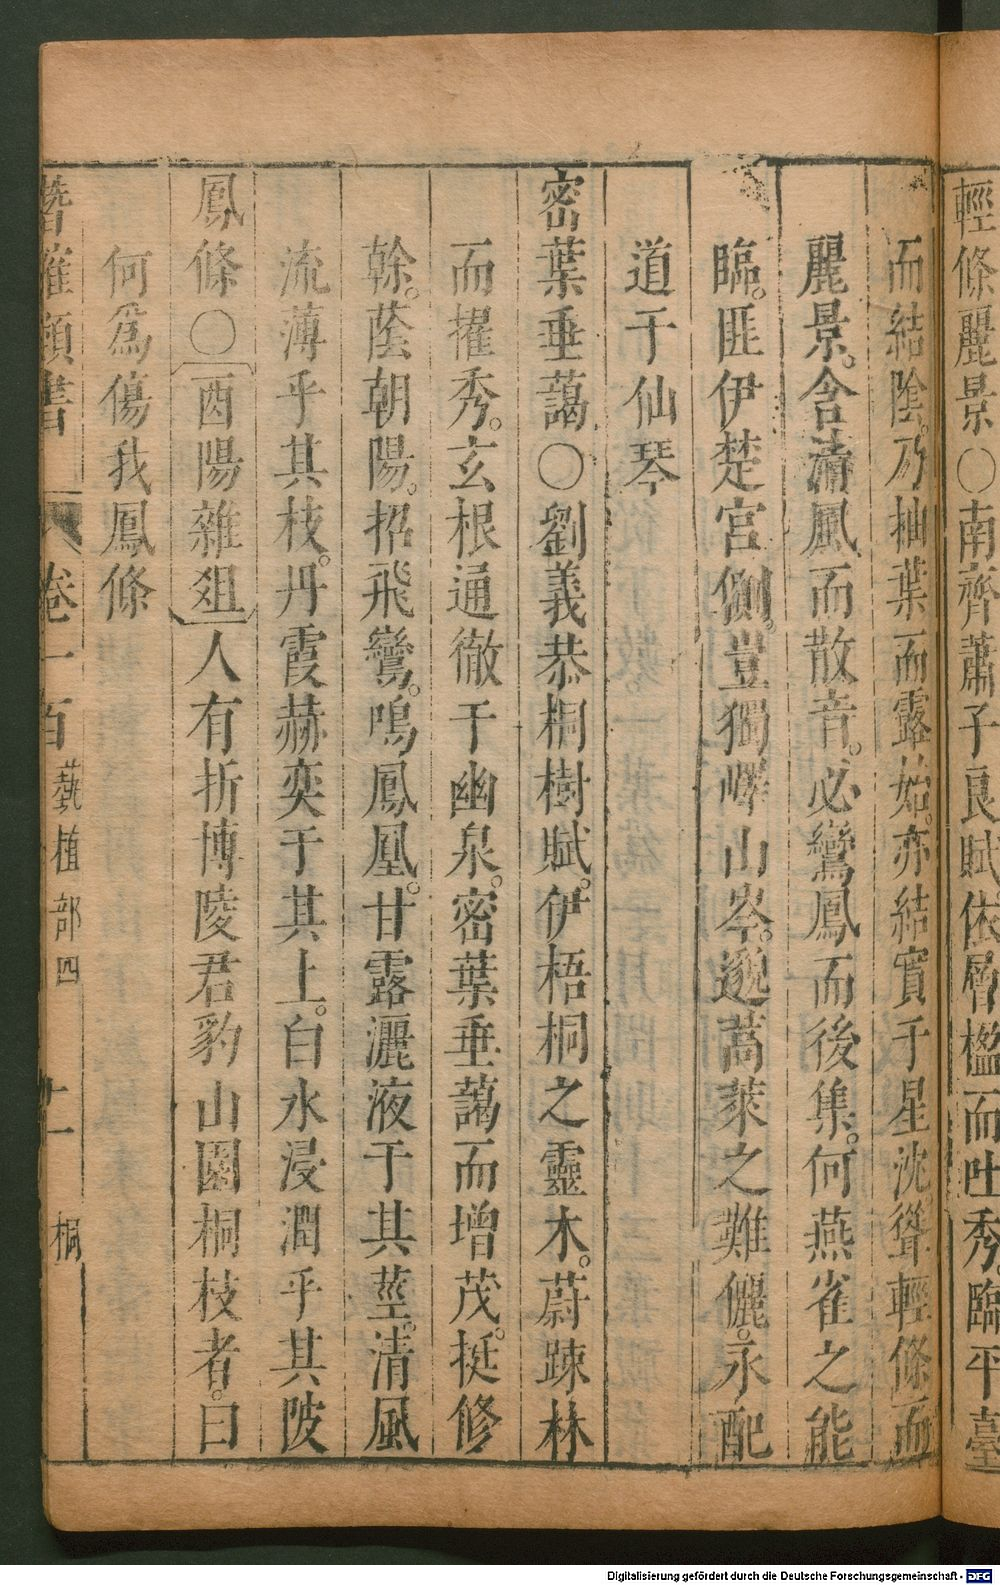 輕條麗景○南齊蕭子良賦依層檻而吐秀臨平臺
而結陰乃抽葉而露始亦結實于星沈聳輕條而
麗景含清風而散音必鸞鳳而後集何燕雀之能
臨匪伊楚宮側豈獨嶧山岑邈蒿萊之難儷永配
道于仙琴
密葉垂藹○劉義恭桐樹賦伊梧桐之靈木蔚踈林
而擢秀玄根通徹于幽泉密葉垂藹而增茂挺修
榦蔭朝陽招飛鸞鳴鳳凰甘露灑液于其莖清風
流薄乎其枝丹霞赫奕于其上白水浸潤乎其陂
鳳條○酉陽雜爼人有折博陵君豹山園桐枝者曰
何爲傷我鳳條
卷一百 藝植部四 十一 桐
Digitalisierung gefördert durch die Deutsche Forschungsgemeinschaft - DFG